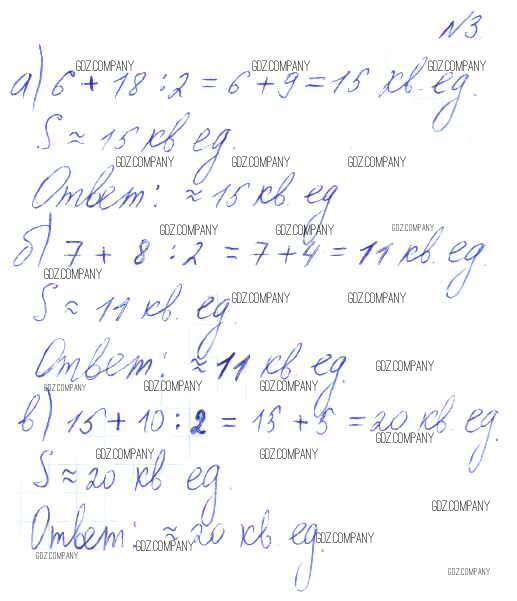 №3
GDZ.COMPANY GDZ.COMPANY GDZ.COMPANY
а) 6 + 18 : 2 = 6 + 9 = 15 кв. ед.
S ≈ 15 кв. ед.
GDZ.COMPANY GDZ.COMPANY GDZ.COMPANY
Ответ: ≈ 15 кв. ед
GDZ.COMPANY GDZ.COMPANY GDZ.COMPANY
б) 7 + 8 : 2 = 7 + 4 = 11 кв. ед.
GDZ.COMPANY
S ≈ 11 кв. ед.
GDZ.COMPANY GDZ.COMPANY
Ответ: ≈ 11 кв. ед.
GDZ.COMPANY
GDZ.COMPANY GDZ.COMPANY GDZ.COMPANY
в) 15 + 10 : 2 = 15 + 5 = 20 кв. ед.
GDZ.COMPANY
GDZ.COMPANY GDZ.COMPANY
S ≈ 20 кв. ед.
GDZ.COMPANY
Ответ: ≈ 20 кв. ед.
GDZ.COMPANY GDZ.COMPANY
GDZ.COMPANY
GDZ.COMPANY